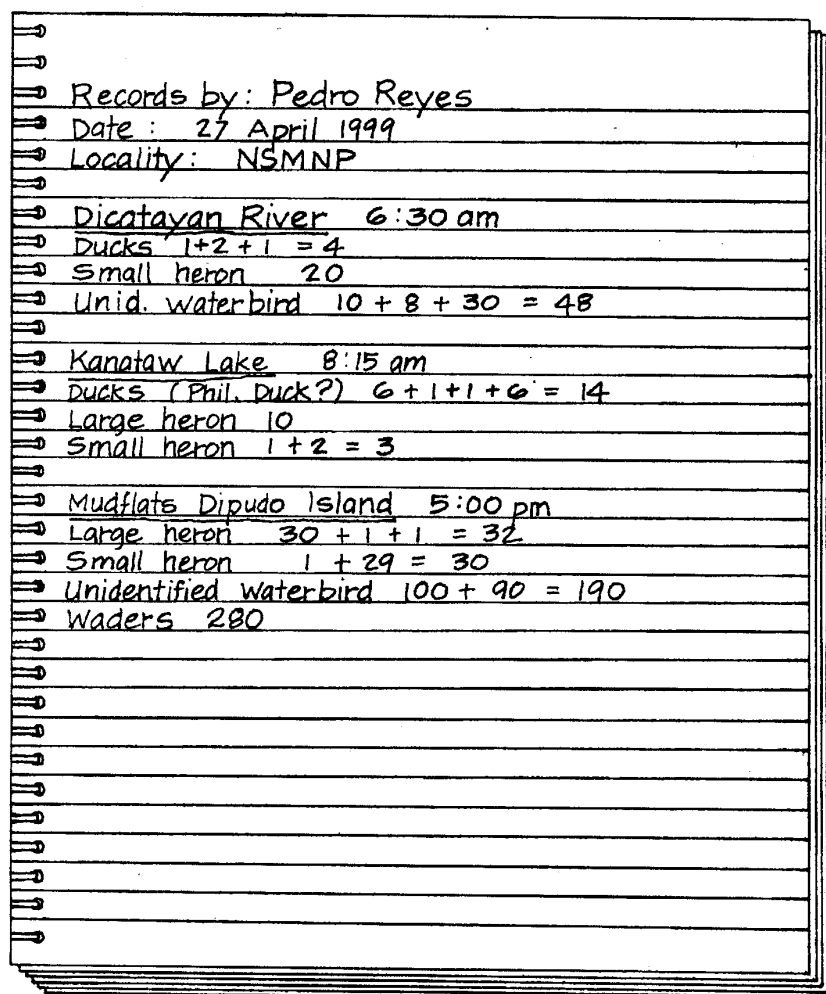 Records by: Pedro Reyes
Date: 27 April 1999
Locality: NSMNP
Dicatayan River 6:30 am
Ducks 1+2+1 = 4
Small heron 20
Unid. waterbird 10 + 8 + 30 = 48
Kanataw Lake 8:15 am
Ducks (Phil. Duck?) 6+1+1+6 = 14
Large heron 10
Small heron 1 + 2 = 3
Mudflats Dipudo Island 5:00 pm
Large heron 30 + 1 + 1 = 32
Small heron 1 + 29 = 30
Unidentified Waterbird 100 + 90 = 190
Waders 280